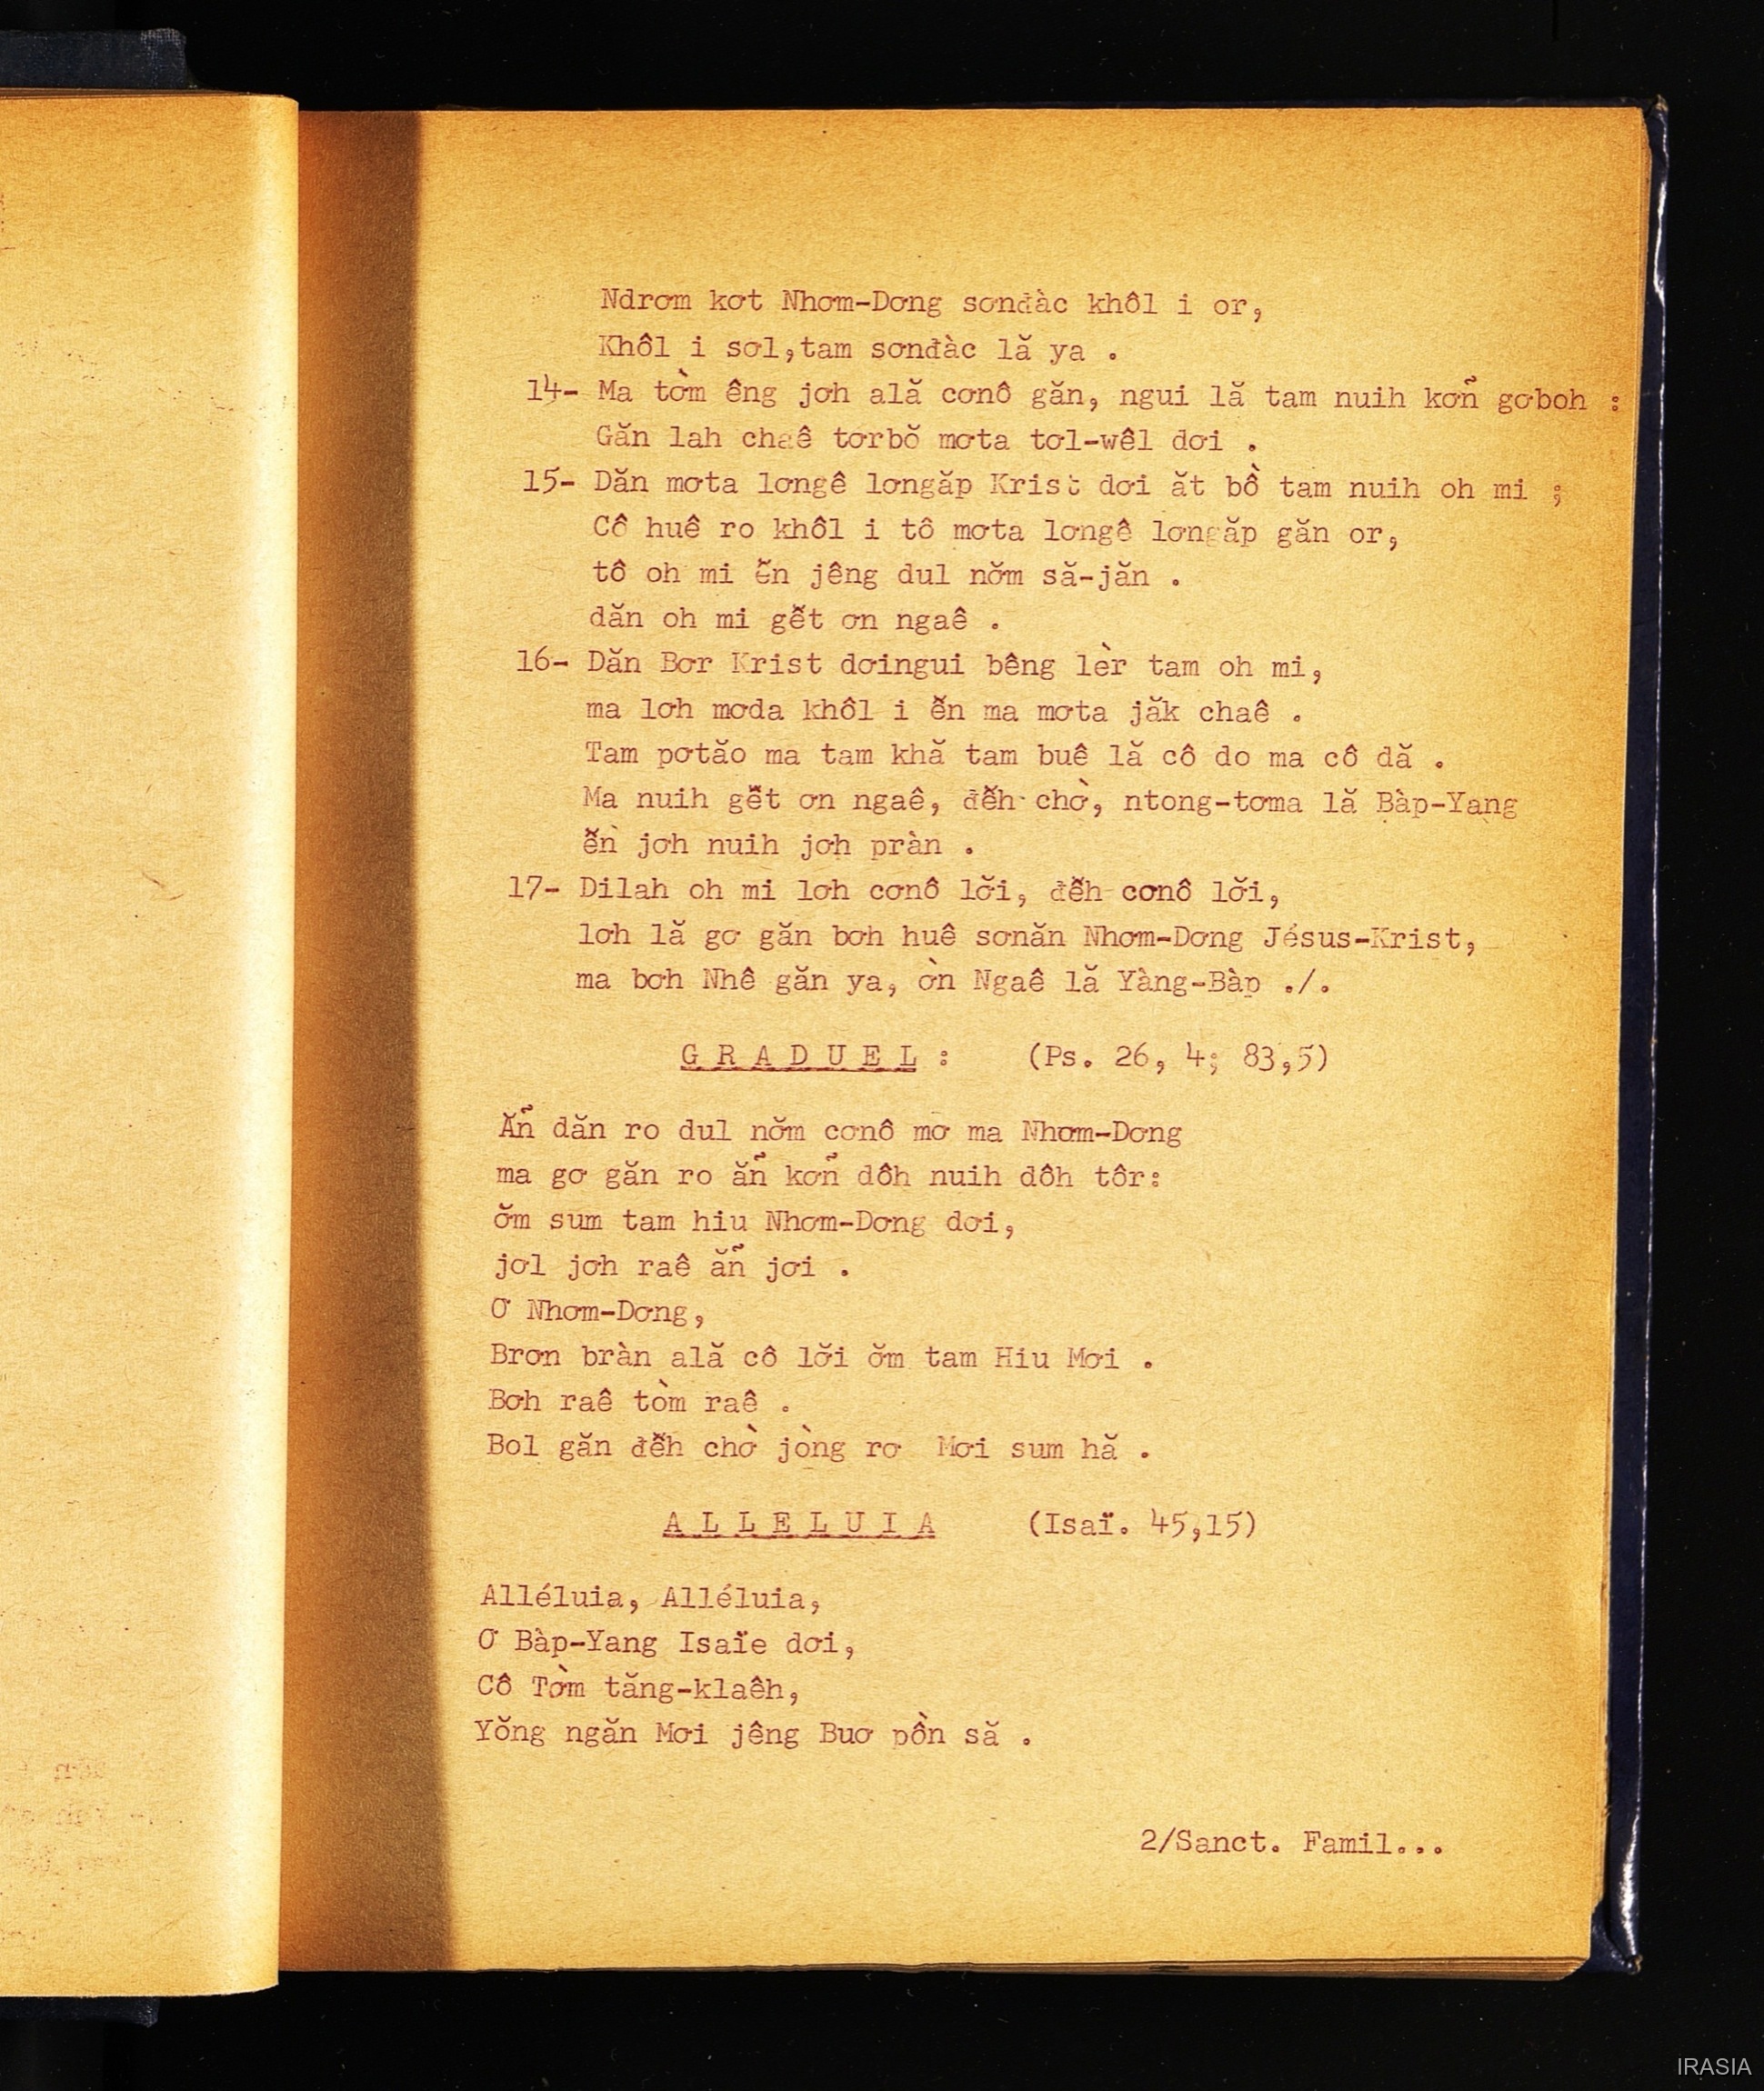 Ndrơm kơt Nhơm-Dơng sơnđàc khôl i or,
Khôl i sơl,tam sơnđàc lă ya .
14- Ma tờm êng jơh ală cơnô găn, ngui lă tam nuih kơn̉ gơboh :
Găn lah chaê tơrbŏ mơta tơl-wêl dơi .
15- Dăn mơta lơngê lơngăp Krist dơi ăt bồ tam nuih oh mi ;
Cô huê ro khôl i tô mơta lơngê lơngăp găn or,
tô oh mi ê̆n jêng dul nơ̆m să-jăn .
dăn oh mi gê̆t ơn ngaê .
16- Dăn Bơr Krist dơingui bêng lèr tam oh mi,
ma lơh mơda khôl i ê̆n ma mơta jăk chaê .
Tam pơtăo ma tam khă tam buê lă cô do ma cô dă .
Ma nuih gê̆t ơn ngaê, đê̆h chờ, ntong-tơma lă Bàp-Yang
ê̆n jơh nuih jơh pràn .
17- Dilah oh mi lơh cơnô lơ̆i, đê̆h cơnô lơ̆i,
lơh lă gơ găn bơh huê sơnăn Nhơm-Dơng Jésus-Krist,
ma bơh Nhê găn ya, ờn Ngaê lă Yàng-Bàp ./.
G R A D U E L : (Ps. 26, 4; 83,5)
Ăn̉ dăn ro dul nơ̆m cơnô mơ ma Nhơm-Dơng
ma gơ găn ro ăn̉ kơn̉ dôh nuih dôh tôr:
ơ̆m sum tam hiu Nhơm-Dơng dơi,
jơl jơh raê ăn̉ jơi .
Ơ Nhơm-Dơng,
Brơn bràn ală cô lơ̆i ơ̆m tam Hiu Mơi .
Bơh raê tòm raê .
Bol găn đê̆h chờ jòng rơ Mơi sum hă .
A L L E L U I A (Isaï. 45,15)
Alléluia, Alléluia,
Ơ Bàp-Yang Isaïe dơi,
Cô Tờm tăng-klaêh,
Yŏng ngăn Mơi jêng Buơ pồn să .
2/Sanct. Famil...
IRASIA